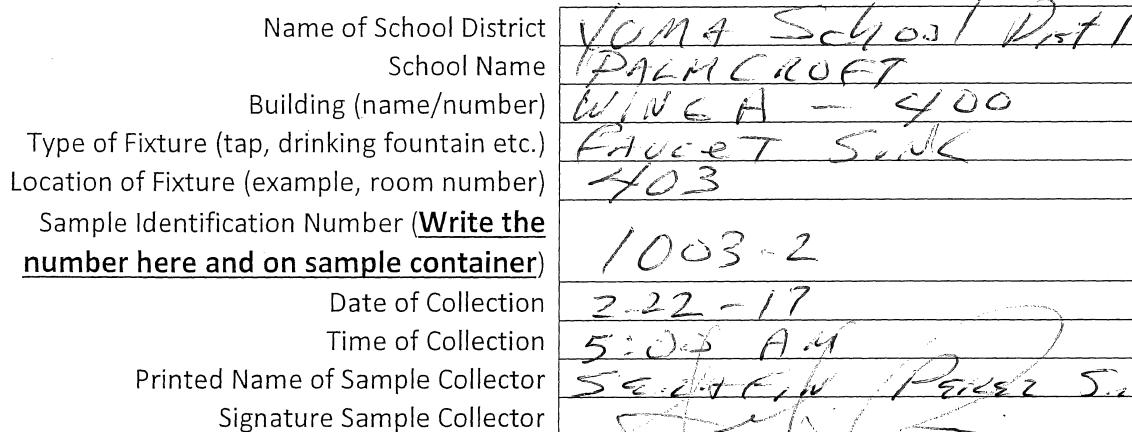 Name of School District YUMA School Dist 1
School Name PALMCROFT
Building (name/number) WING A - 400
Type of Fixture (tap, drinking fountain etc.) FAUCET SINK
Location of Fixture (example, room number) 403
Sample Identification Number (Write the
number here and on sample container) 1003-2
Date of Collection 2-22-17
Time of Collection 5: AM
Printed Name of Sample Collector SERAFIN PEREZ
Signature Sample Collector